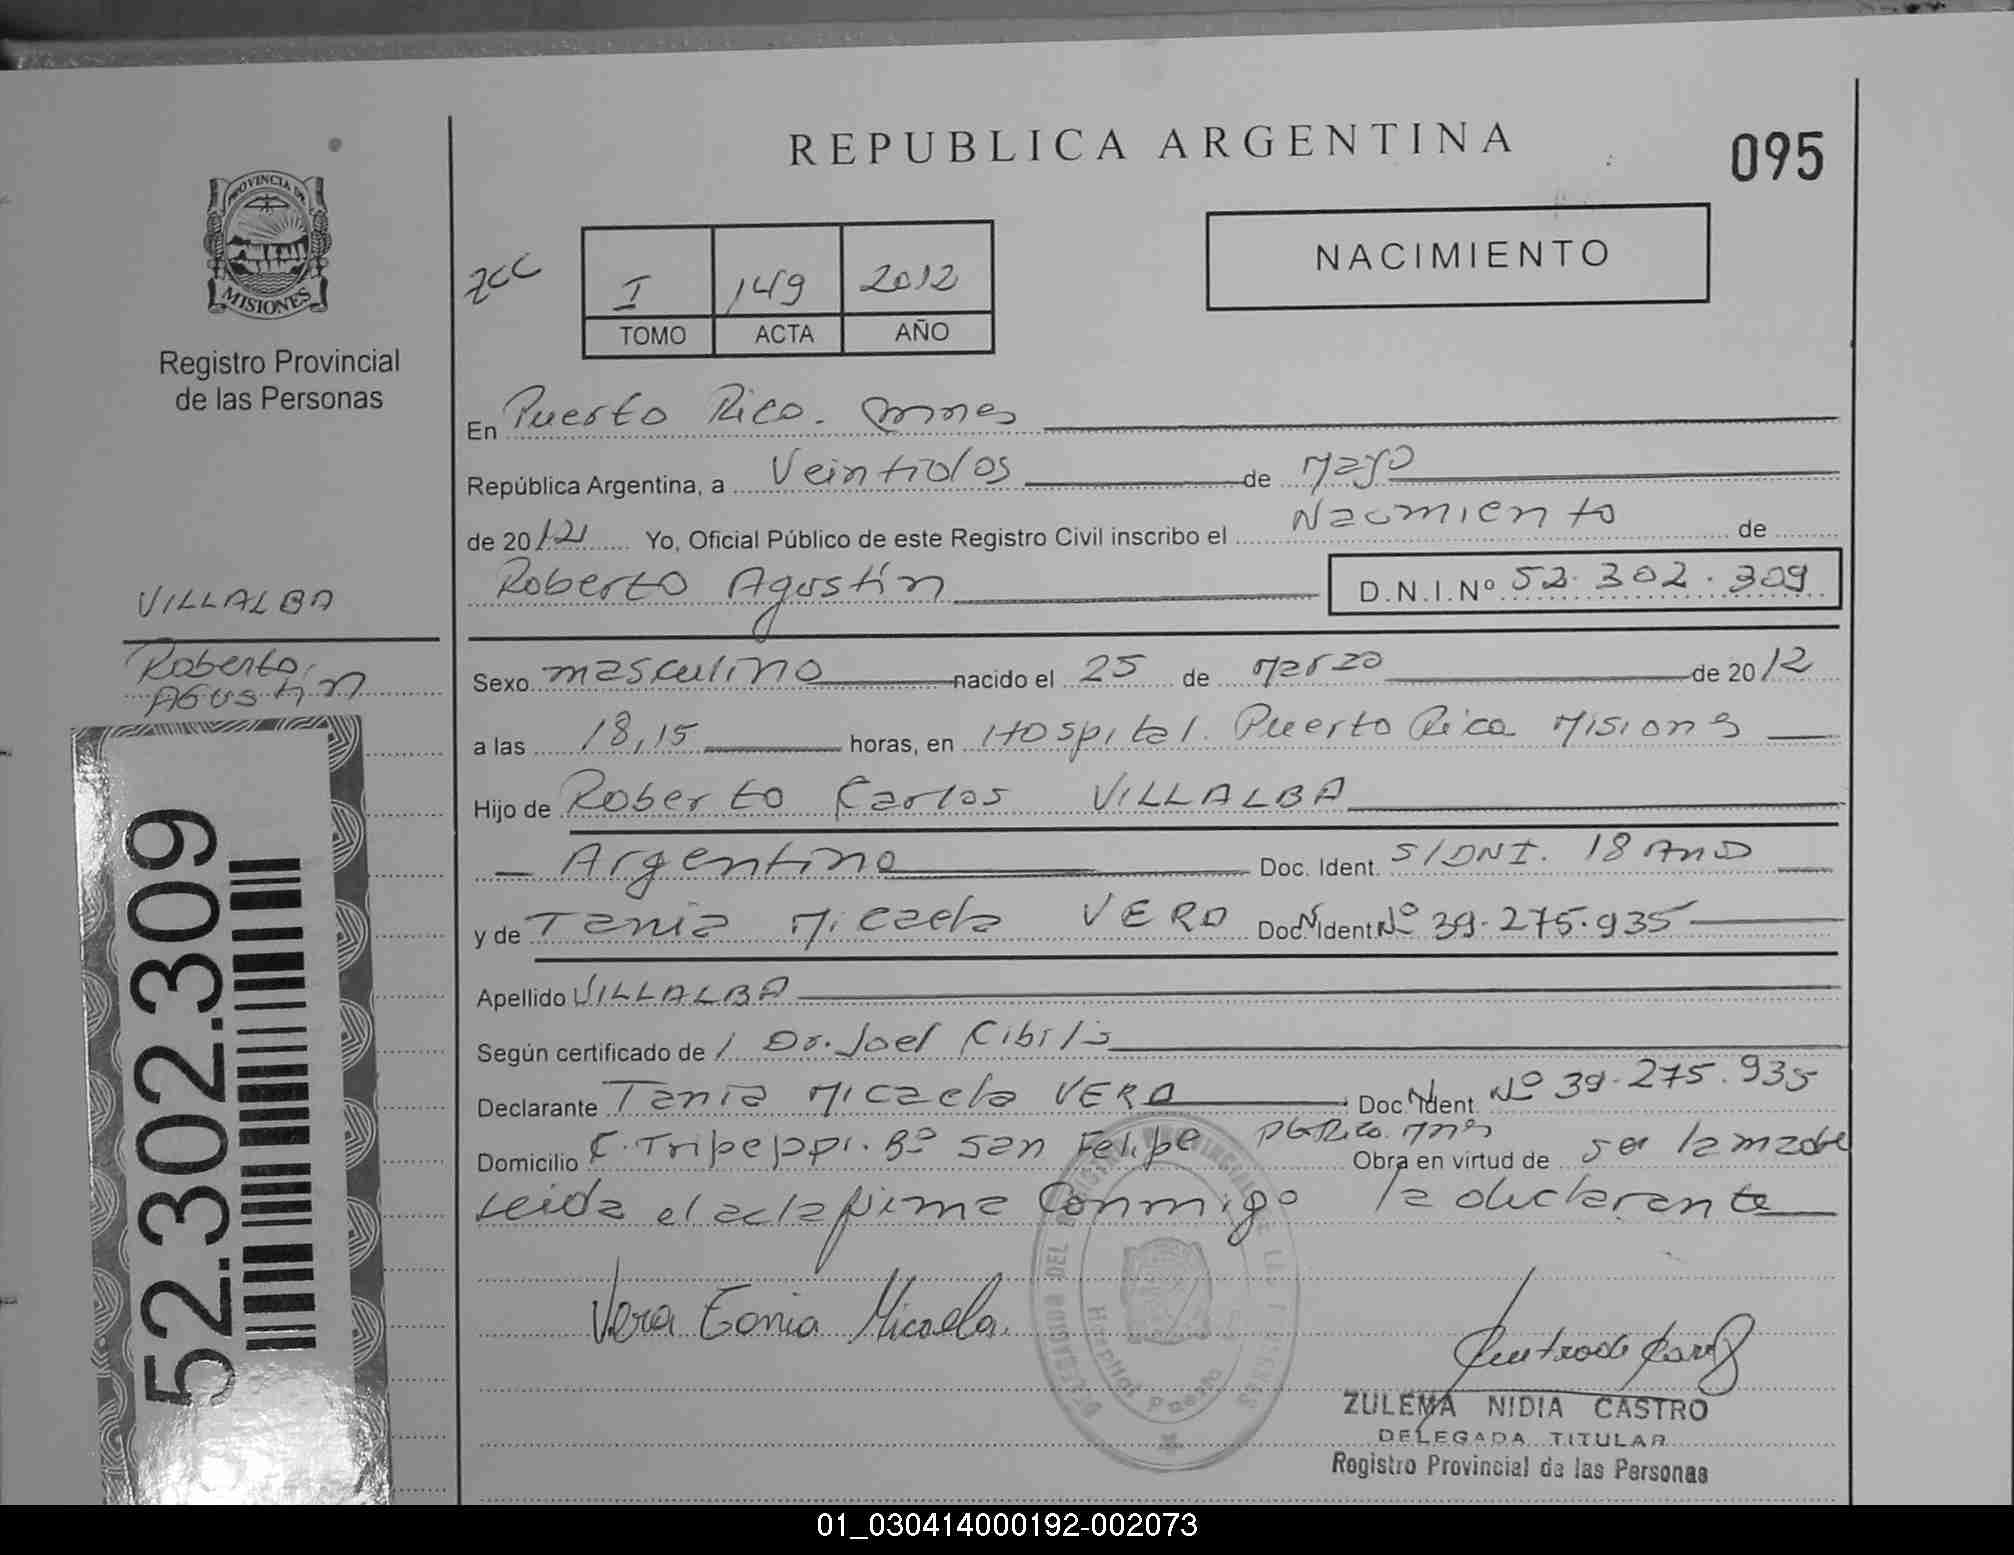 REPUBLICA ARGENTINA
095
PROVINCIA DE
MISIONES
Registro Provincial
de las Personas
zcc
I 149 2012
TOMO ACTA AÑO
NACIMIENTO
En Puerto Rico. Mnes
República Argentina, a Veintidos de Mayo
de 2012 Yo, Oficial Público de este Registro Civil inscribo el Nacimiento de
Roberto Agustín D.N.I.Nº 52.302.309
VILLALBA
Roberto
AGUSTIN
Sexo masculino nacido el 25 de Marzo de 2012
a las 18,15 horas, en Hospital. Puerto Rico Misiones
Hijo de Roberto Carlos VILLALBA
Argentino Doc. Ident. S/DNI. 18 Años
y de Tania Micaela VERA Doc. Ident Nº 39.275.935
Apellido VILLALBA
Según certificado de Dr. Joel Cibils
Declarante Tania Micaela VERA Doc. Ident Nº 39.275.935
Domicilio C. Tripeppi. Bº San Felipe Pto Rico. Mnes Obra en virtud de ser la madre
Leida el acta firma Conmigo la declarante
Vera Tania Micaela.
DELEGACION DEL REGISTRO PROVINCIAL DE LAS PERSONAS
Hospital Puerto
ZULEMA NIDIA CASTRO
DELEGADA TITULAR
Registro Provincial de las Personas
52.302.309
01_030414000192-002073